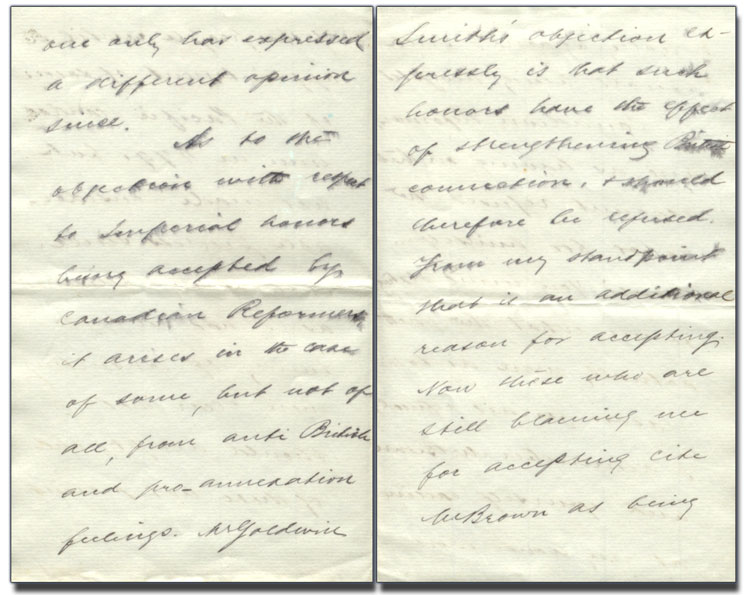 one only has expressed
a different opinion
since. As to the
objection with respect
to Imperial honors
being accepted by
Canadian Reformers
it arises in the case
of some, but not of
all, from anti British
and pro-annexation
feelings. Mr Goldwin
Smith's objection ex-
pressly is that such
honors have the effect
of strengthening British
connection, & should
therefore be refused.
From my standpoint
that is an additional
reason for accepting.
Now these who are
still blaming me
for accepting cite
Mr Brown as being